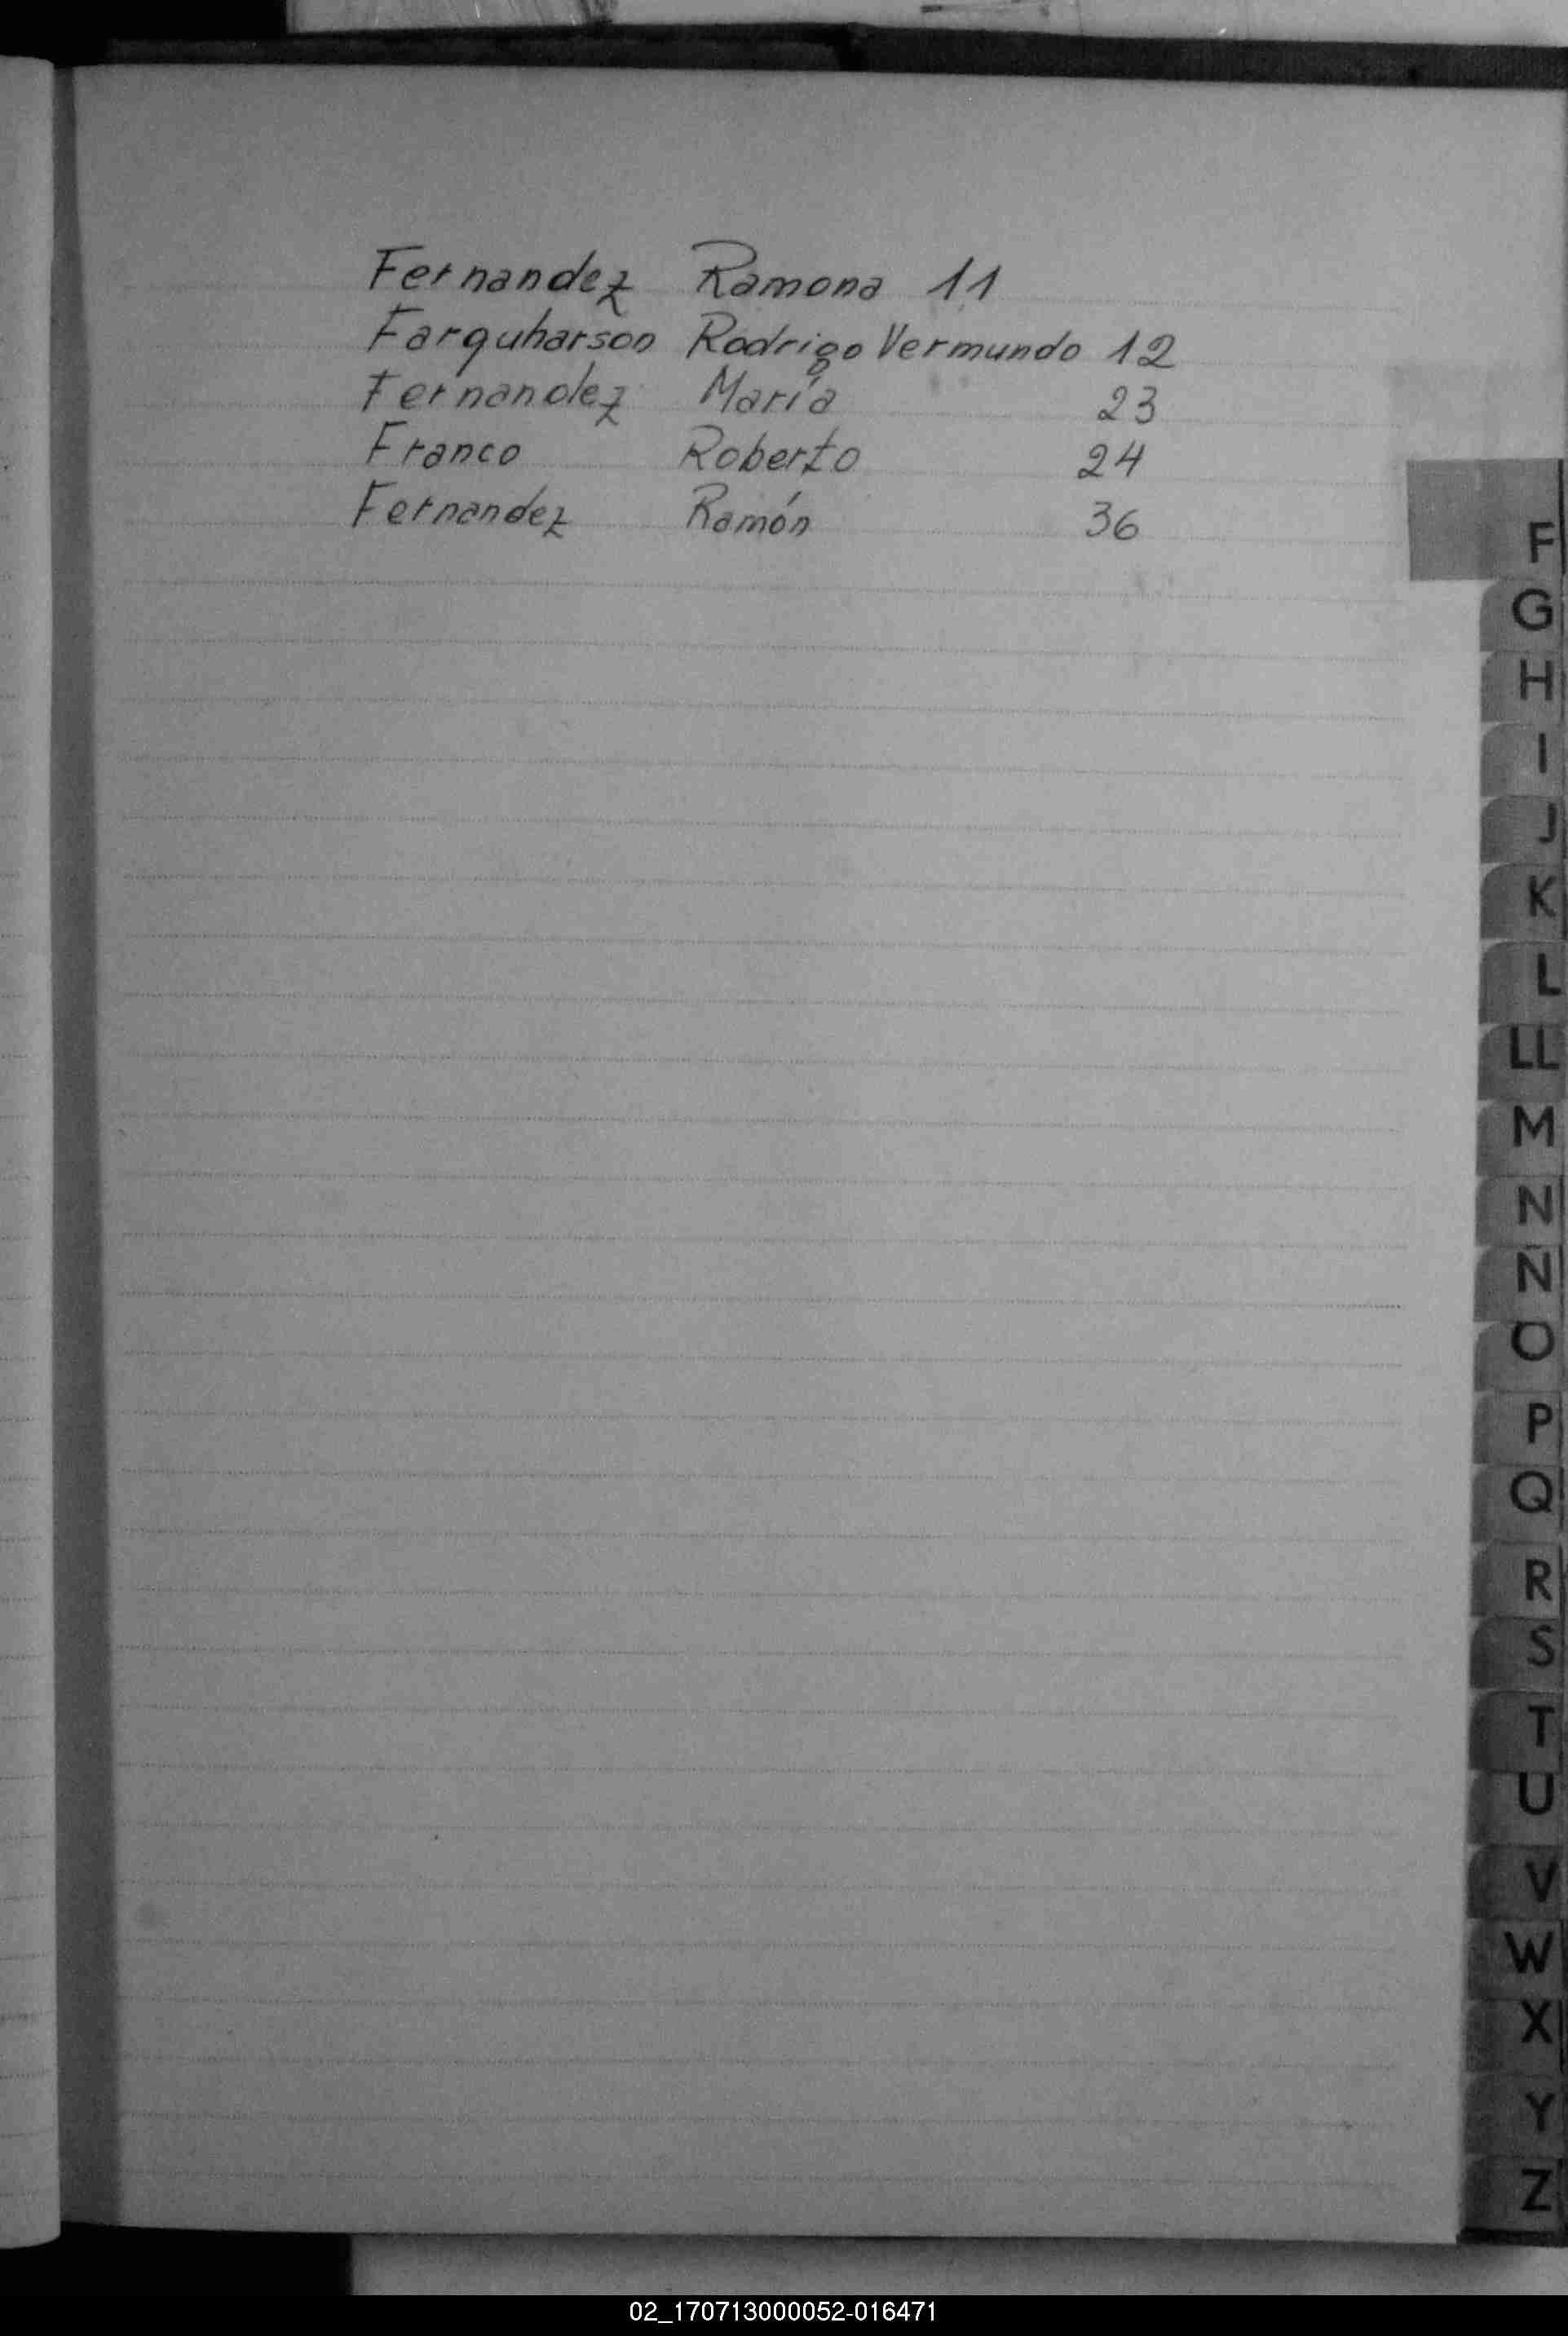 Fernandez Ramona 11
Farquharson Rodrigo Vermundo 12
Fernandez María 23
Franco Roberto 24
Fernandez Ramón 36
F
G
H
I
J
K
L
LL
M
N
Ñ
O
P
Q
R
S
T
U
V
W
X
Y
Z
02_170713000052-016471